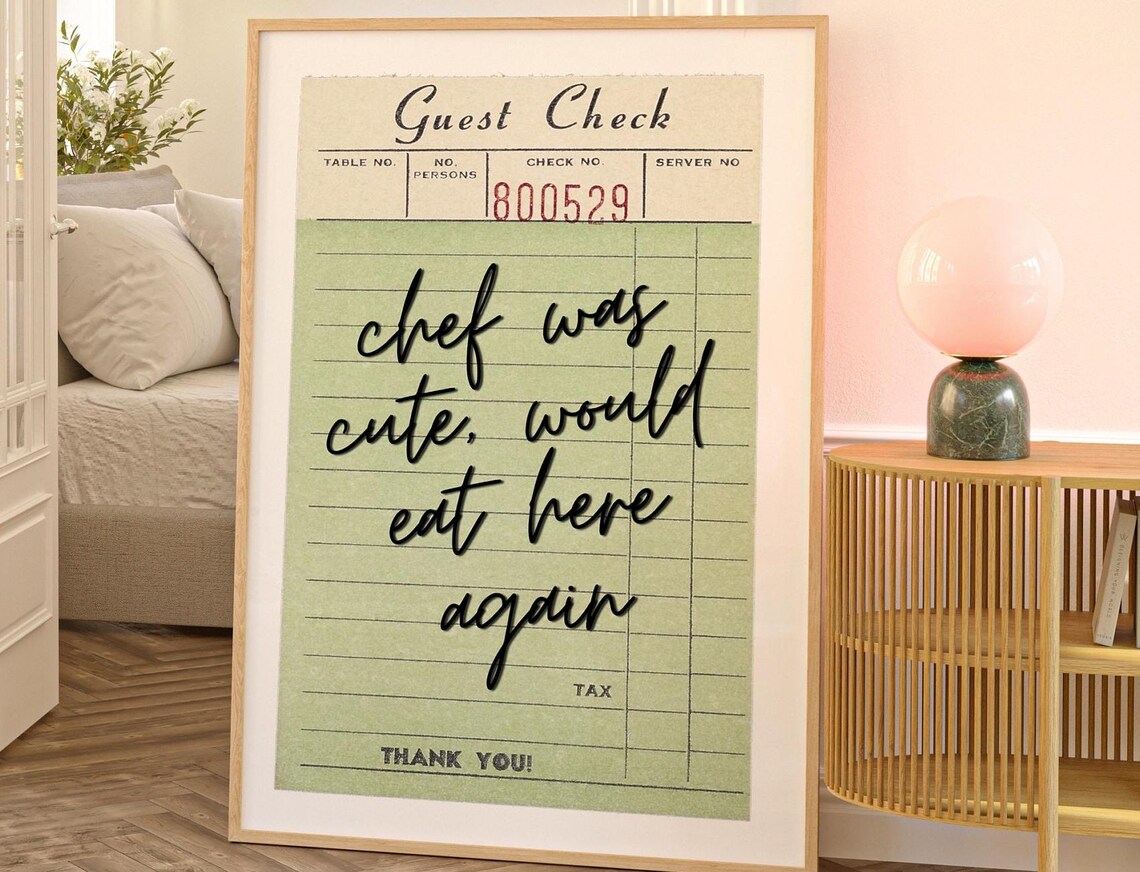 Guest Check
TABLE NO. NO. PERSONS CHECK NO. SERVER NO
800529
chef was
cute, would
eat here
again
TAX
THANK YOU!